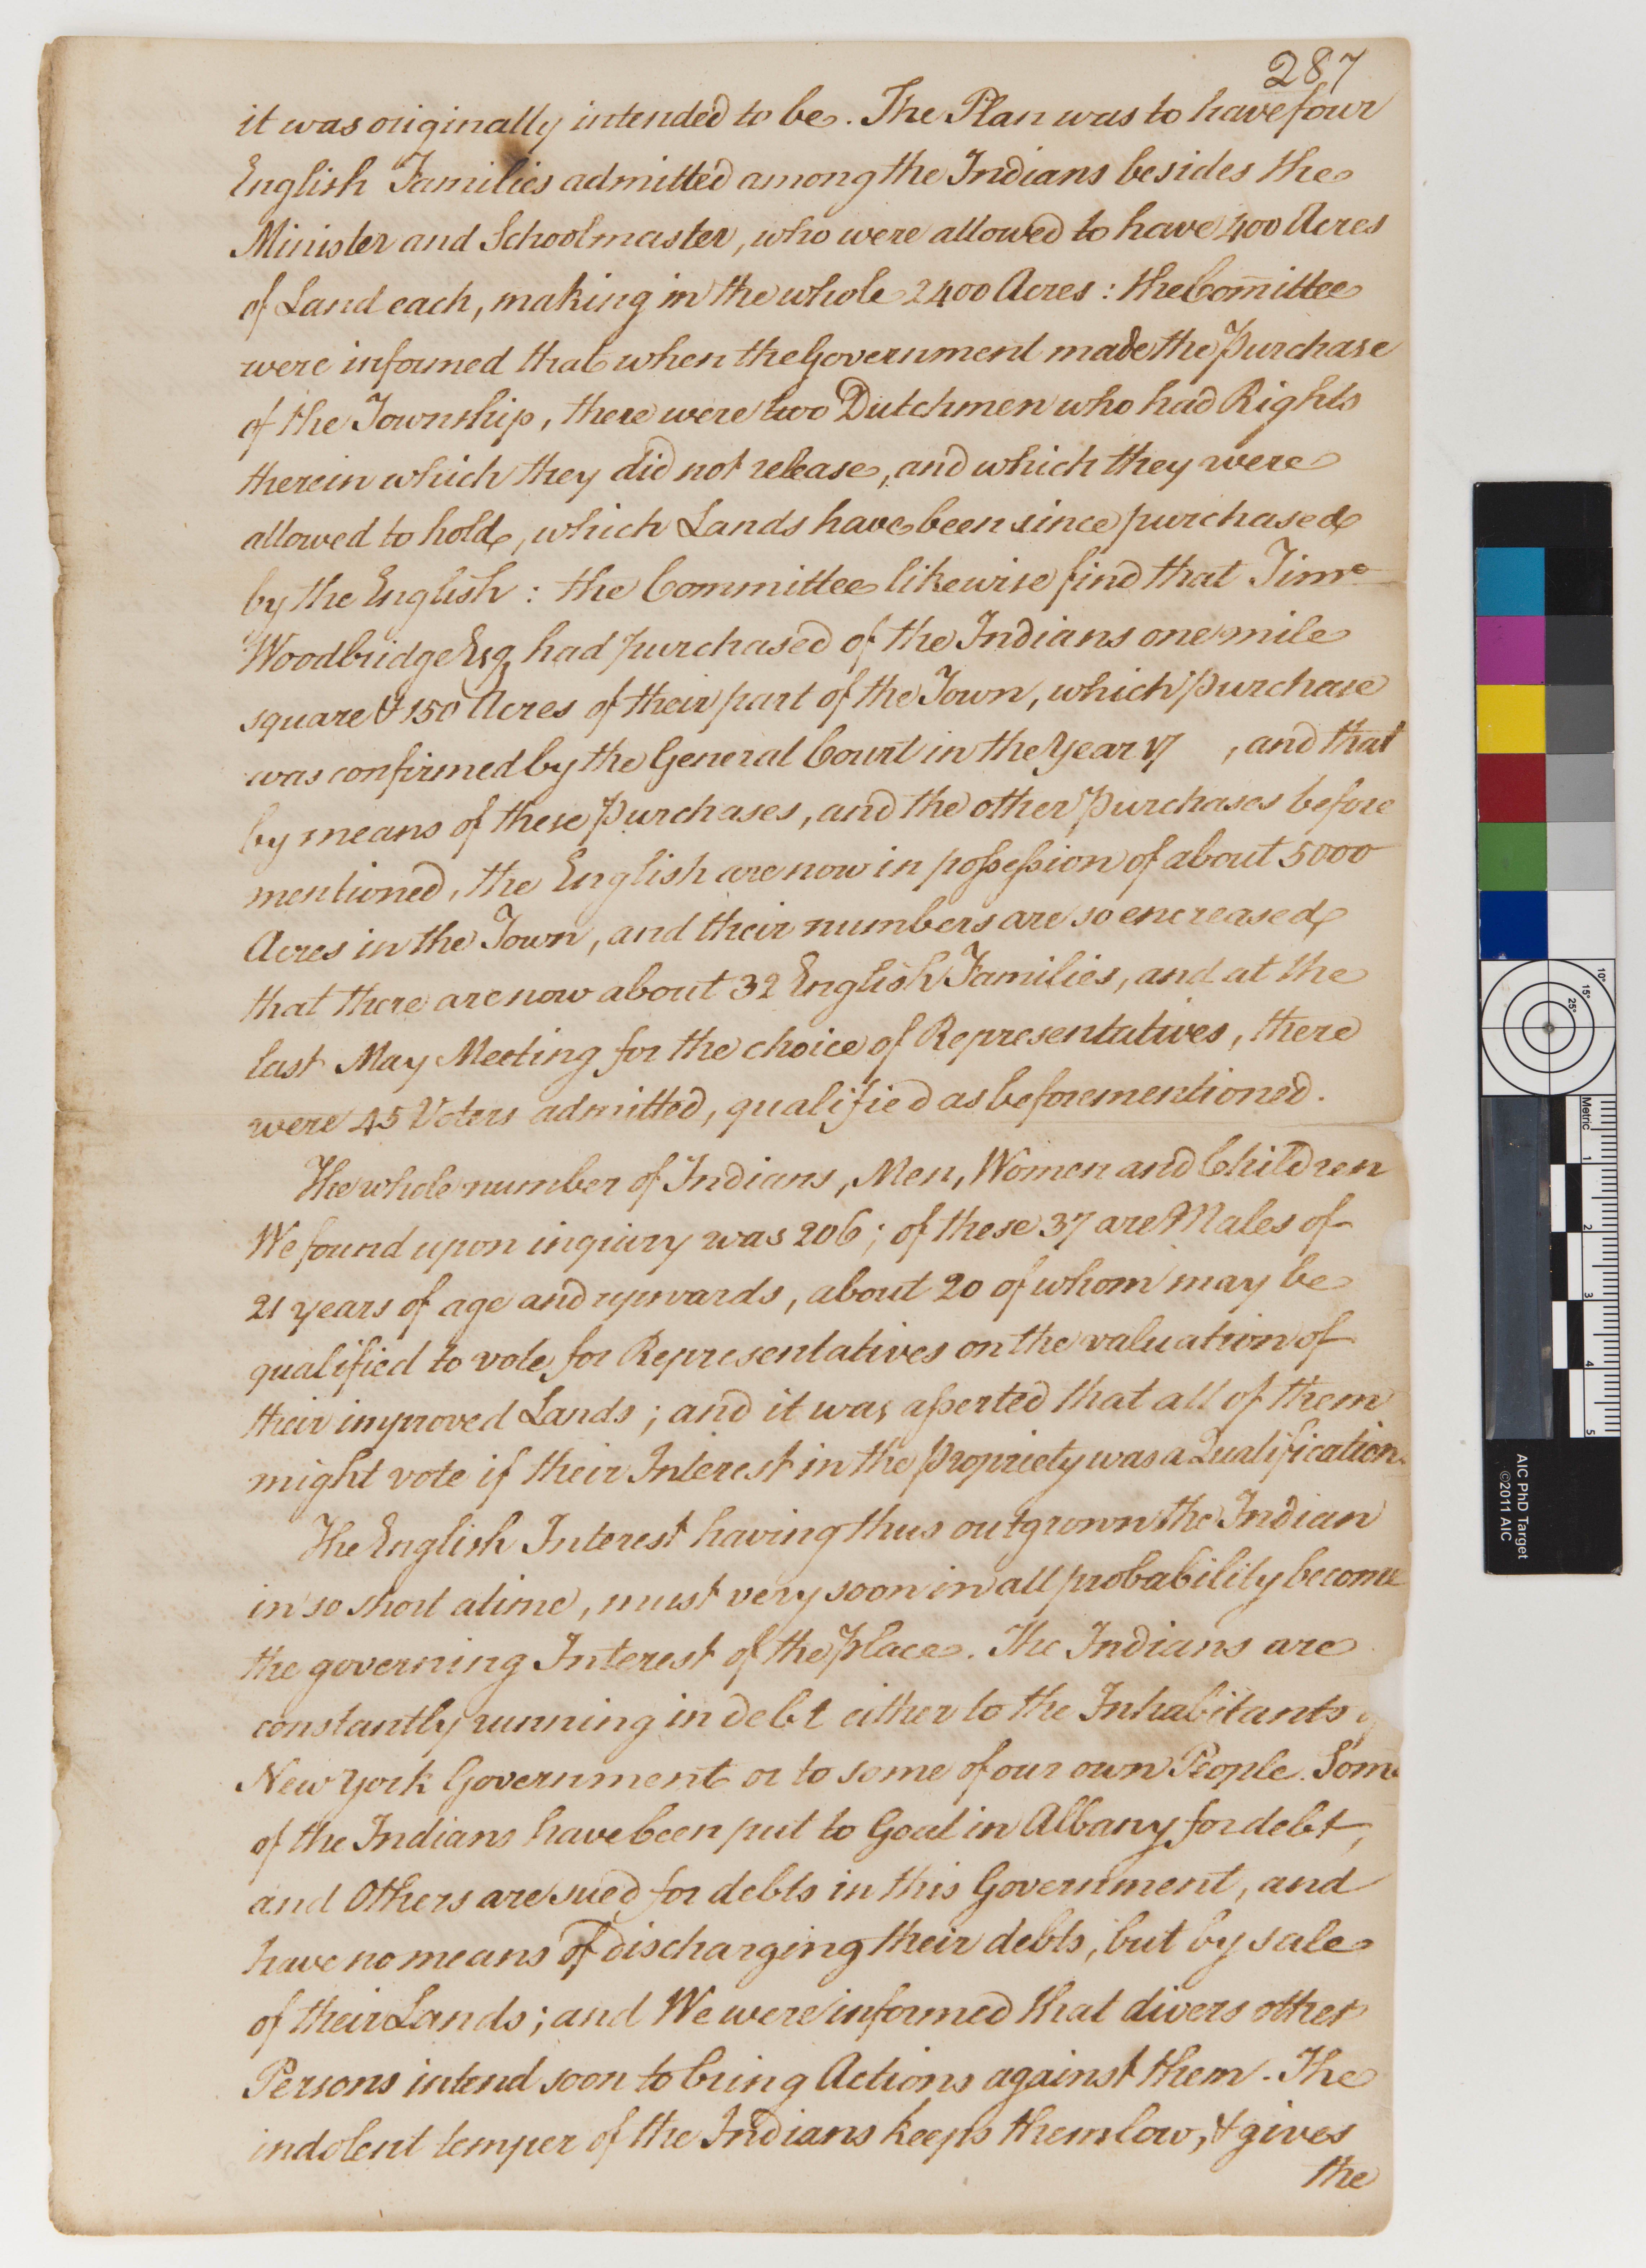 287
it was originally intended to be. The Plan was to have four
English Families admitted among the Indians besides the
Minister and Schoolmaster, who were allowed to have 400 Acres
of Land each, making in the whole 2400 Acres: the Com̄ittee
were informed that when the Government made the Purchase
of the Township, there were two Dutchmen who had Rights
therein which they did not release, and which they were
allowed to hold, which Lands have been since purchased
by the English: the Committee likewise find that Timo
Woodbridge Esq had purchased of the Indians one mile
square & 150 Acres of their part of the Town, which Purchase
was confirmed by the General Court in the Year 17 , and that
by means of these Purchases, and the other Purchases before
mentioned, the English are now in possession of about 5000
Acres in the Town, and their numbers are so encreased
that there are now about 32 English Families, and at the
last May Meeting for the choice of Representatives, there
were 45 Voters admitted, qualified as beforementioned.
The whole number of Indians, Men, Women and Children
We found upon inquiry was 206; of these 37 are Males of
21 years of age and upwards, about 20 of whom may be
qualified to vote for Representatives on the valuation of
their improved Lands; and it was asserted that all of them
might vote if their Interest in the Propriety was a Qualification.
The English Interest having thus outgrown the Indian
in so short a time, must very soon in all probability become
the governing Interest of the Place. The Indians are
constantly running in debt either to the Inhabitants
New York Government or to some of our own People. Some
of the Indians have been put to Goal in Albany for debt,
and Others are sued for debts in this Government, and
have no means of discharging their debts, but by sale
of their Lands; and We were informed that divers other
Persons intend soon to bring Actions against them. The
indolent temper of the Indians keeps them low, & gives
the
10°
15°
25°
Metric
1
2
3
4
5
AIC PhD Target
©2011 AIC